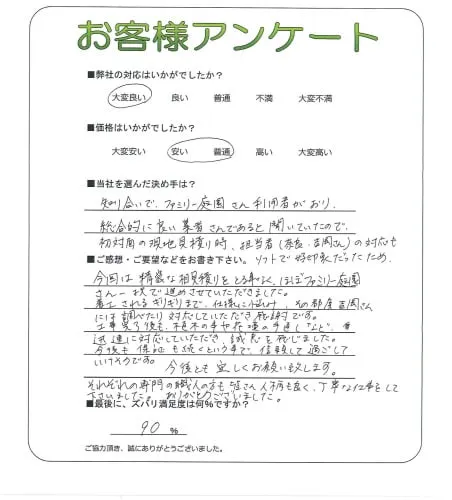 お客様アンケート
■弊社の対応はいかがでしたか？
大変良い 良い 普通 不満 大変不満
■価格はいかがでしたか？
大変安い 安い 普通 高い 大変高い
■当社を選んだ決め手は？
知り合いで、ファミリー庭園さん利用者がおり、
総合的に良い業者さんであると聞いていたので。
初対面の現地見積り時、担当者(奈良・吉岡さん)の対応も
■ご感想・ご要望などをお書き下さい。ソフトで好印象だったため、
今回は相見積りをとる事なく、ほぼファミリー庭園
さん一択で進めさせていただきました。
着工されるギリギリまで、仕様に悩み、その都度吉岡さん
には調べたり対応していただき感謝です。
工事完了後も、植木の事や手直しなど、
迅速に対応していただき、誠意を感じました。
今後も保証も続くという事で、信頼して過ごして
いけそうです。今後とも宜しくお願い致します。
それぞれの専門の職人の方も皆さん人柄も良く、丁寧な仕事をして
下さいました。ありがとうございました。
■最後に、ズバリ満足度は何%ですか？
90 %
ご協力頂き、誠にありがとうございました。